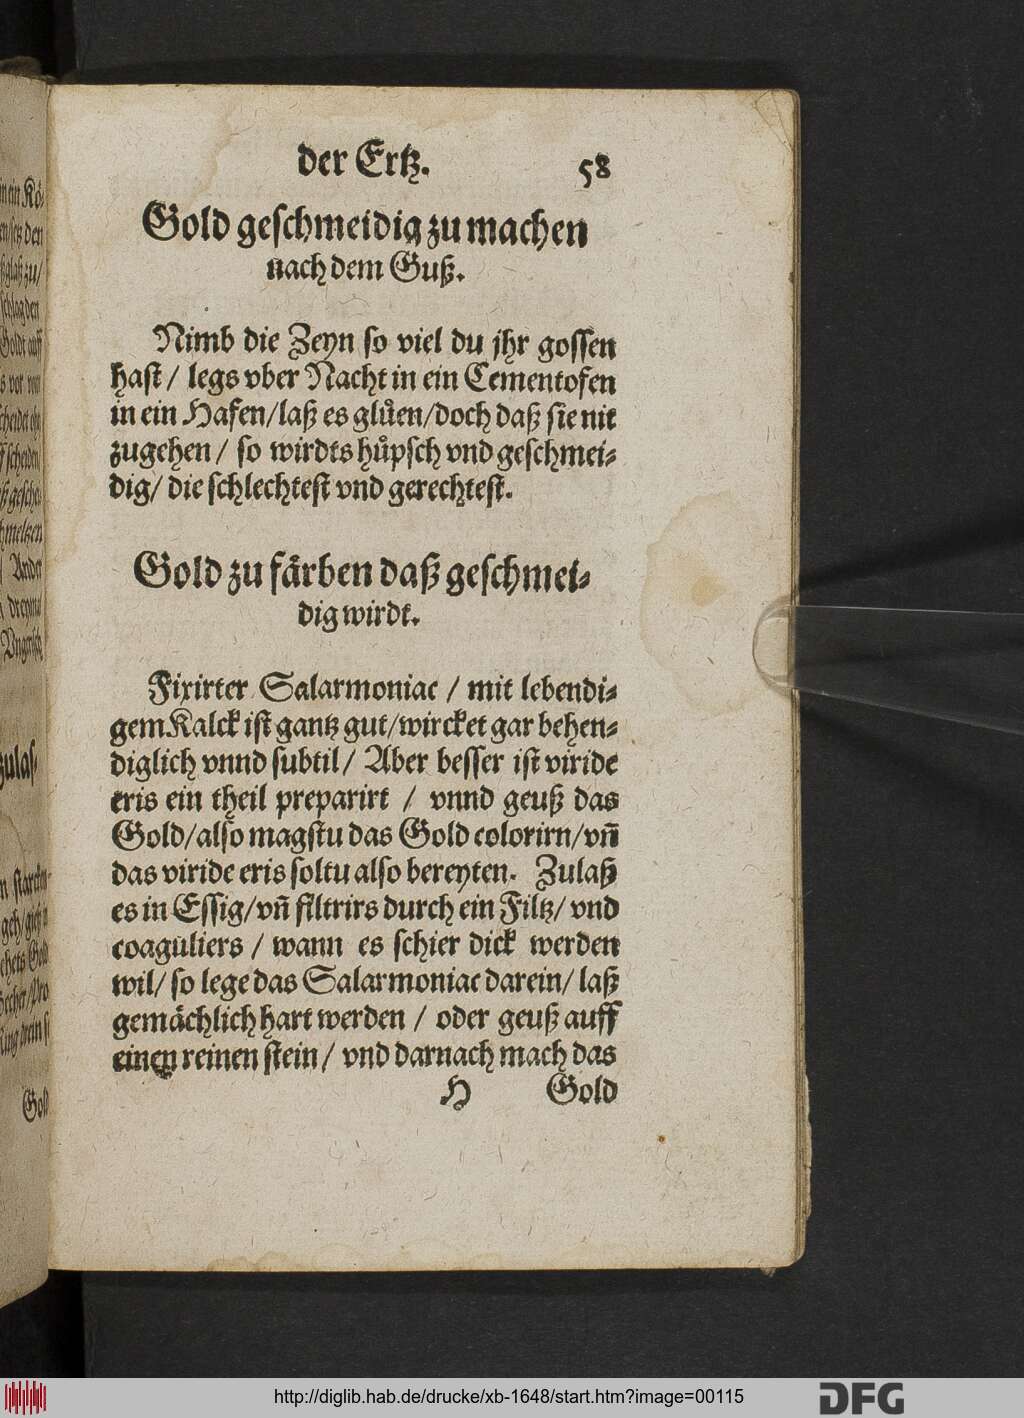 der Ertz. 58
Gold geschmeidig zu machen
nach dem Guß.
Nimb die Zeyn so viel du jhr gossen
hast / legs vber Nacht in ein Cementofen
in ein Hafen / laß es glůen / doch daß sie nit
zugehen / so wirdts hůpsch vnd geschmei-
dig / die schlechtest vnd gerechtest.
Gold zu färben daß geschmei-
dig wirdt.
Fixirter Salarmoniac / mit lebendi-
gem Kalck ist gantz gut / wircket gar behen-
diglich vnnd subtil / Aber besser ist viride
eris ein theil preparirt / vnnd geuß das
Gold / also magstu das Gold colorirn / vñ
das viride eris soltu also bereyten. Zulaß
es in Essig / vñ filtrirs durch ein Filtz / vnd
coaguliers / wann es schier dick werden
wil / so lege das Salarmoniac darein / laß
gemächlich hart werden / oder geuß auff
einen reinen stein / vnd darnach mach das
H Gold
http://diglib.hab.de/drucke/xb-1648/start.htm?image=00115
DFG